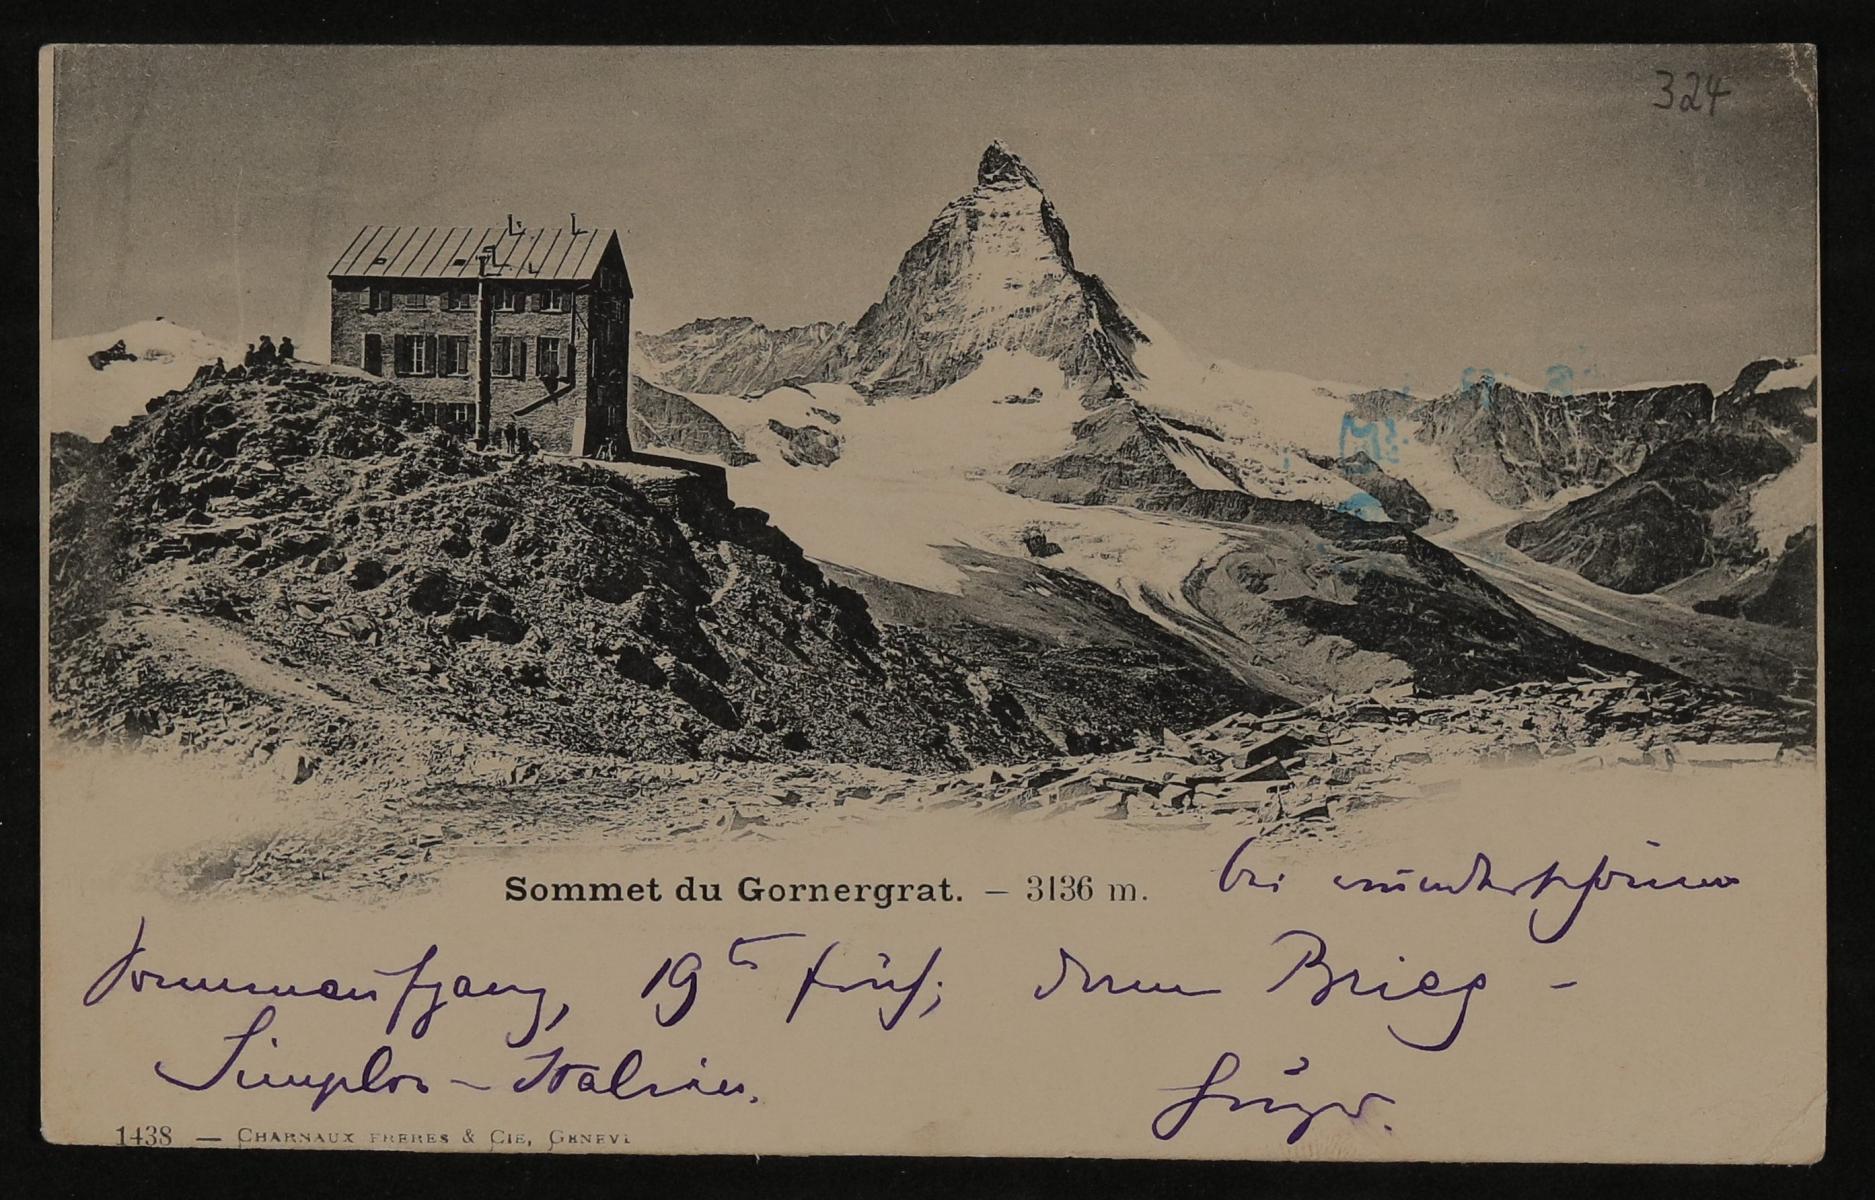 324
Sommet du Gornergrat. – 3136 m.
bei wunderschönem
Sonnenaufgang, 19ten früh; dann Brieg –
Simplon – Italien.
Hugo.
1438 — CHARNAUX FRÈRES & CIE, GENÈVE